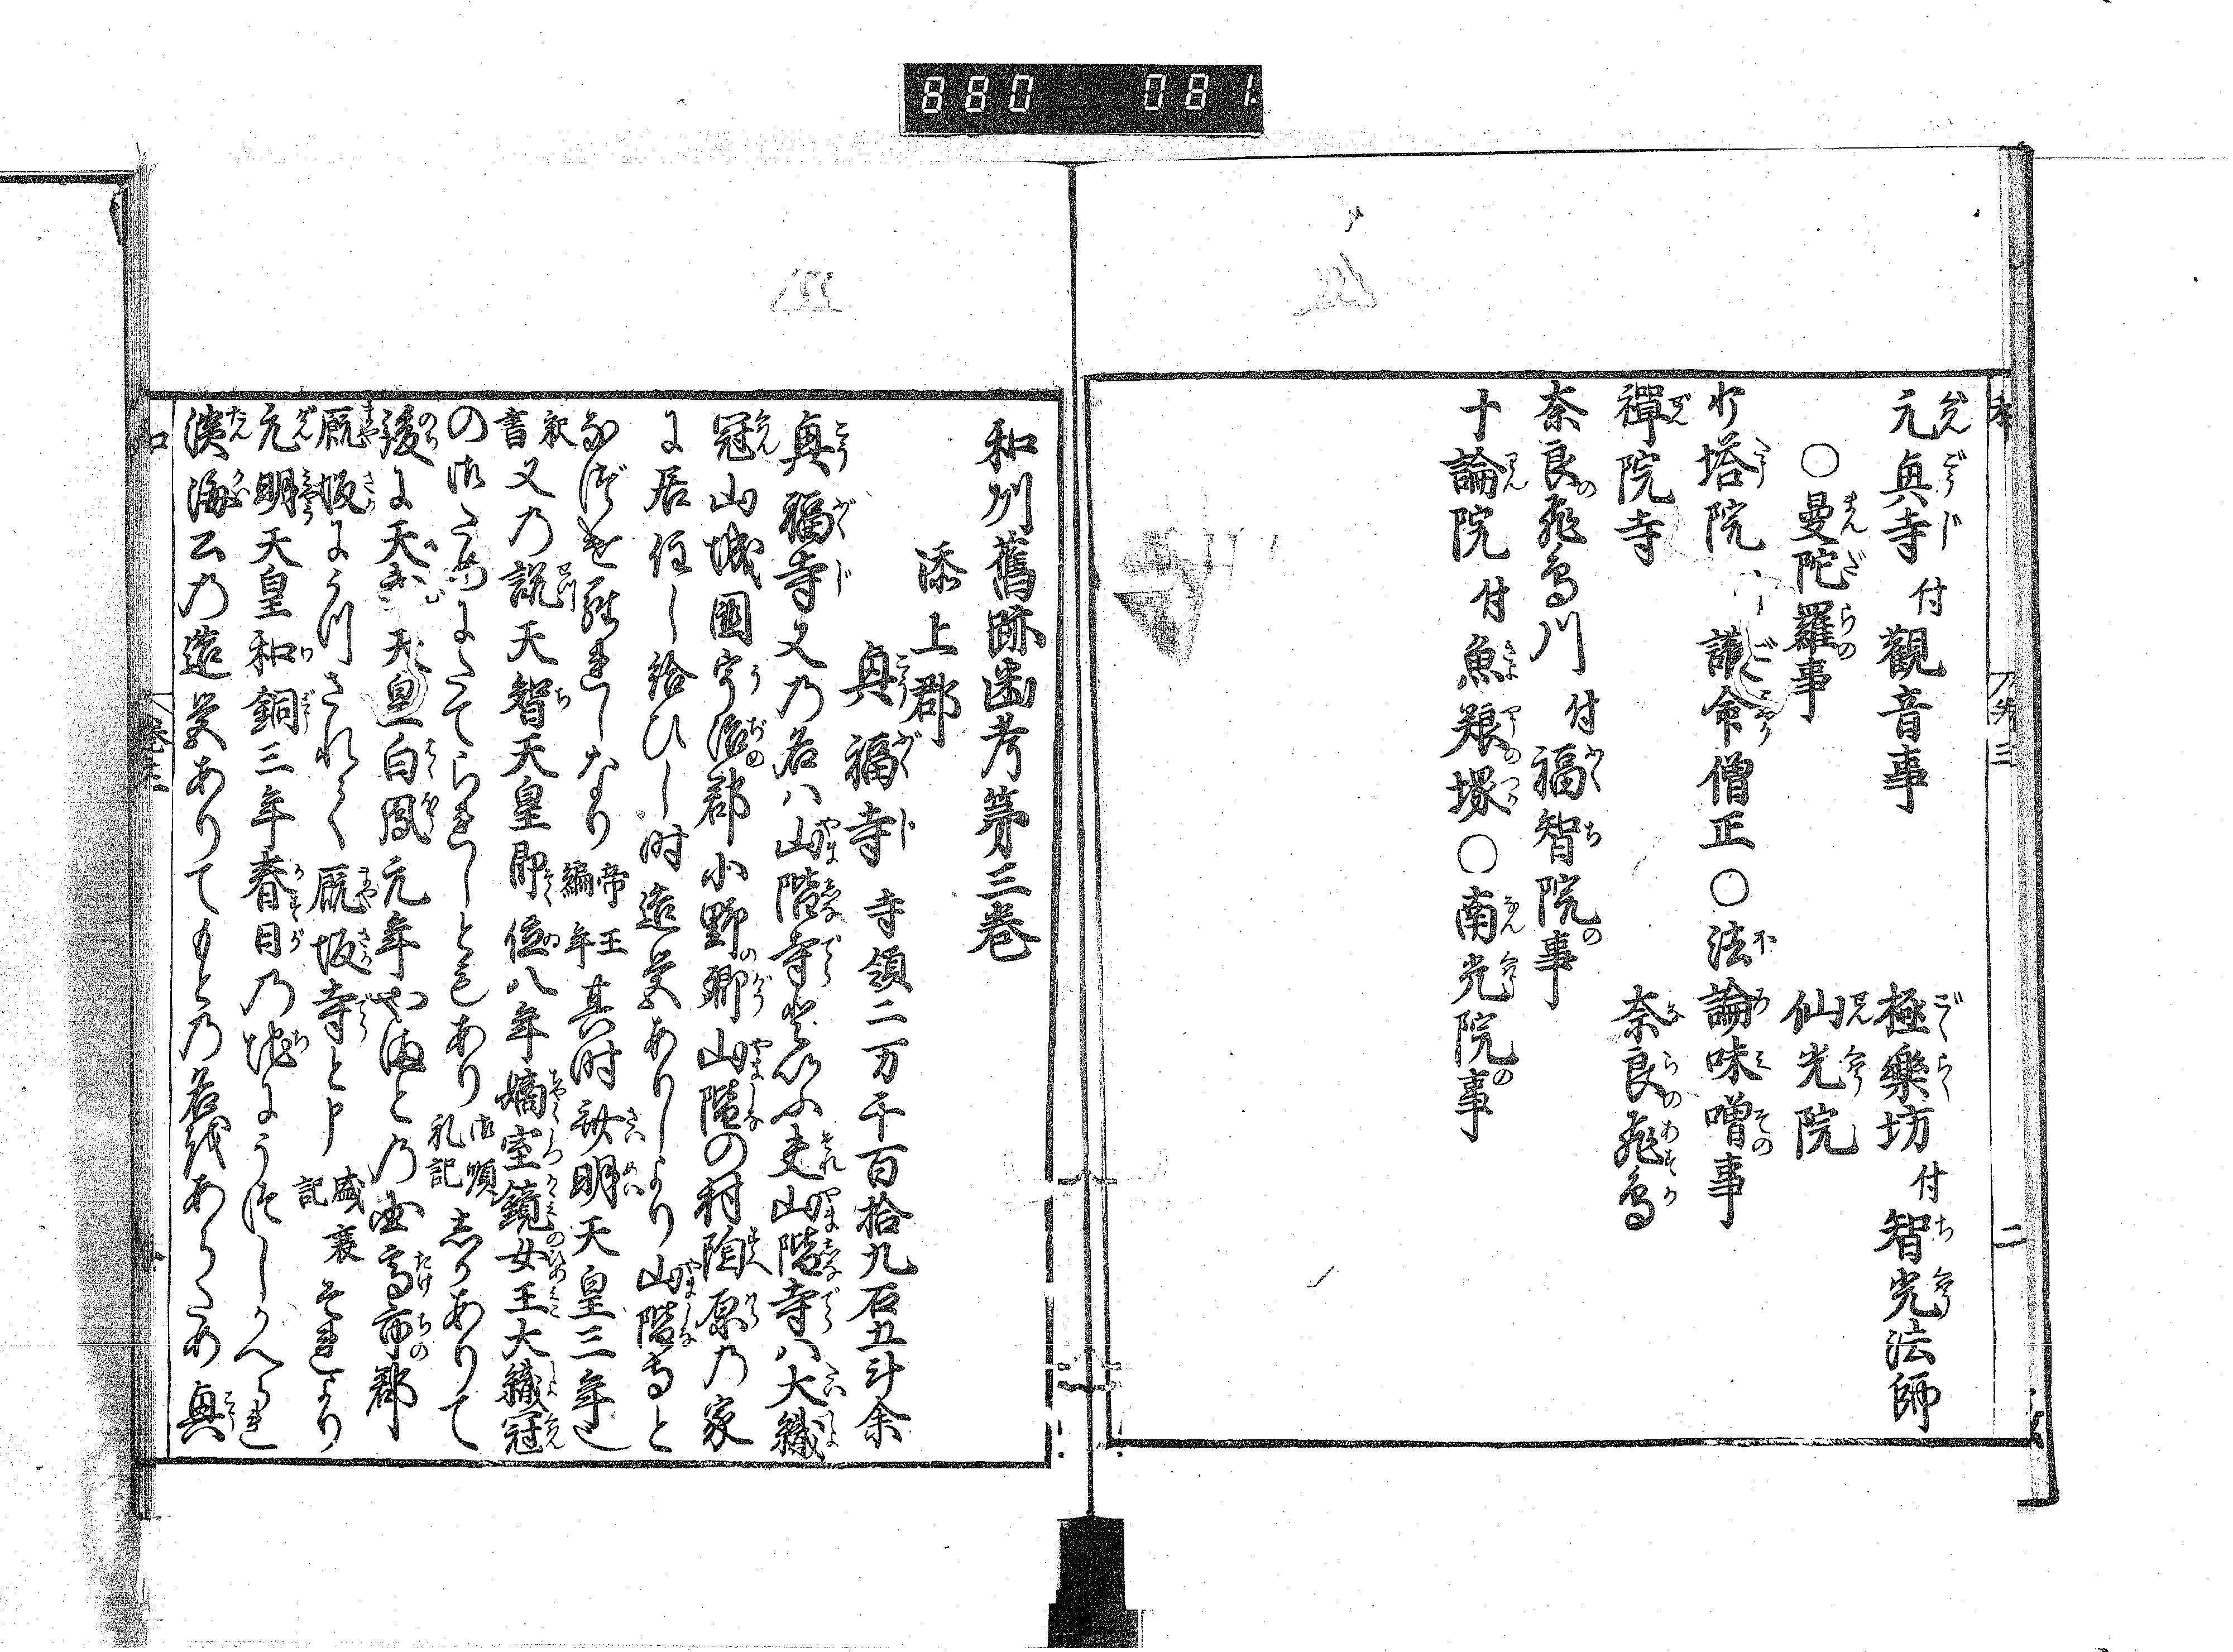 880 081
元興寺 付觀音事 極樂坊 付智光法師
○曼陀羅事 仙光院
小塔院 護命僧正○法論味噌事
禪院寺 奈良飛鳥
奈良飛鳥川 付福智院事
十論院 付魚養塚○南光院事
和州舊跡幽考第三巻
添上郡
興福寺 寺領二万千百拾九石五斗余
興福寺又乃名ハ山階寺といふ夫山階寺ハ大織
冠山城國宇治郡小野郷山階の村陶原乃家
に居住し給ひし時造営ありしより山階寺と
なづけられしなり 帝王編年 其時斉明天皇三年也
釈書 又乃説天智天皇即位八年嫡室鏡女王大織冠
の御ためにたてられしともあり 御順礼記 しかありて
後に天武天皇白鳳元年やまとの国高市郡
厩坂にうつされて厩坂寺と申 盛衰記 それより
元明天皇和銅三年春日乃地にうつしかへられ
淡海公乃造営ありてもとの名をあらため興